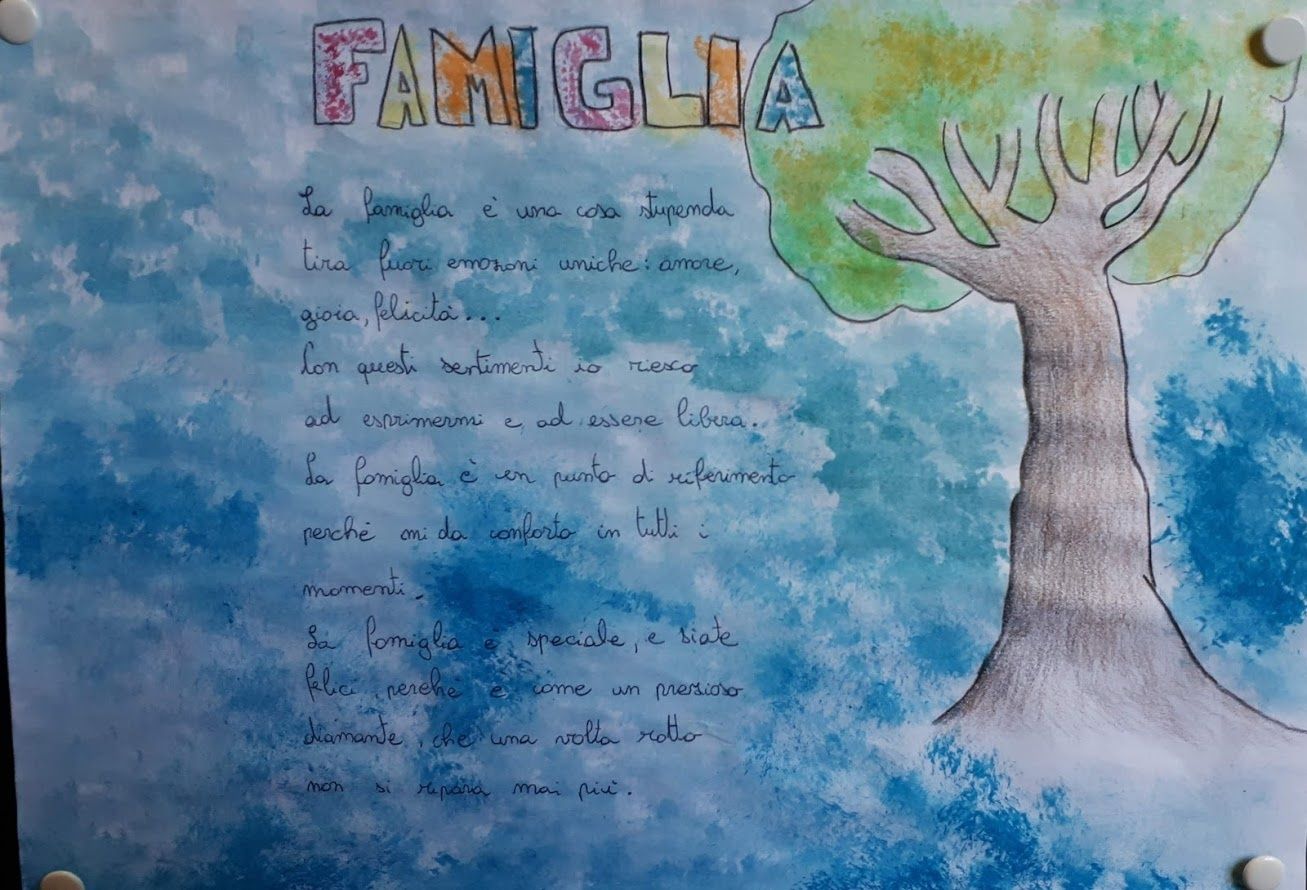 FAMIGLIA
La famiglia è una cosa stupenda
tira fuori emozioni uniche: amore,
gioia, felicità...
Con questi sentimenti io riesco
ad esprimermi e ad essere libera.
La famiglia è un punto di riferimento
perché mi da conforto in tutti i
momenti.
La famiglia e speciale, e siate
felici perché e come un prezioso
diamante, che una volta rotto
non si ripara mai più.